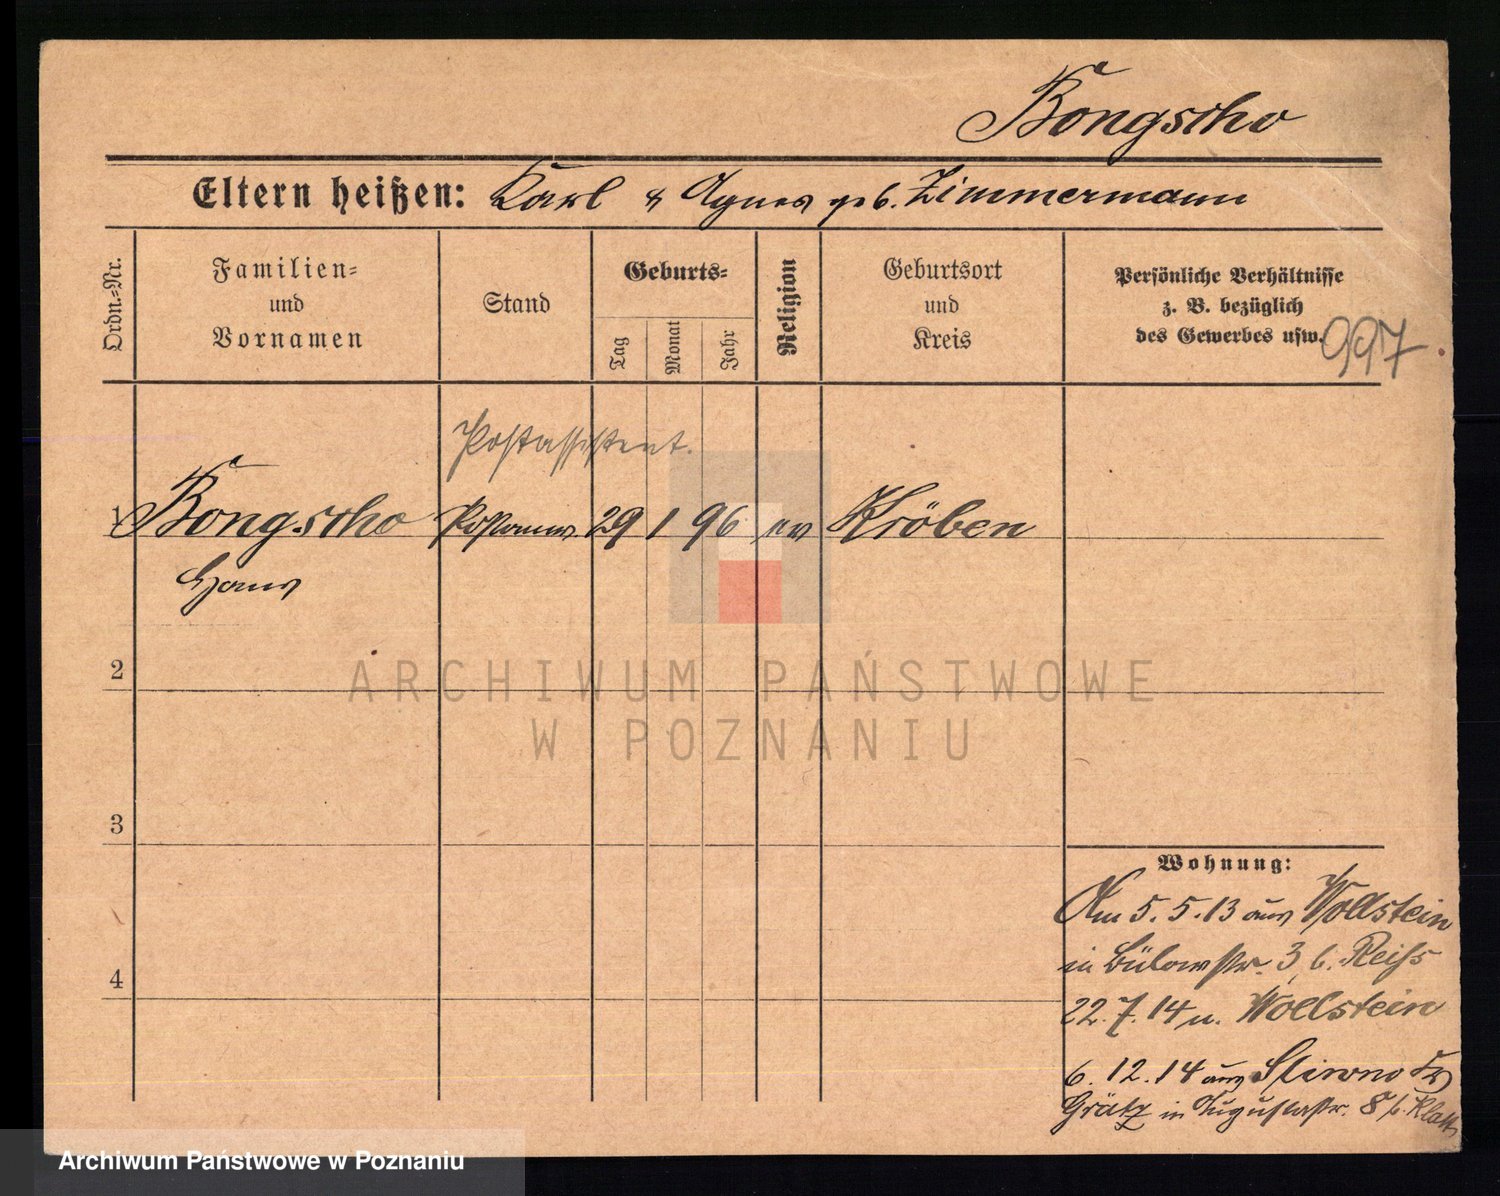 Bongscho
Eltern heißen: Karl & Agnes geb. Zimmermann
Ordn.=Nr.
Familien=
und
Vornamen
Stand
Geburts=
Tag
Monat
Jahr
Religion
Geburtsort
und
Kreis
Persönliche Verhältnisse
z. B. bezüglich
des Gewerbes usw.
997
Postassistent.
1 Bongscho 29 1 96 ev Kröben
Hans
2
ARCHIWUM PAŃSTWOWE
W POZNANIU
3
4
Wohnung:
Am 5. 5. 13 aus Wollstein
in Bülowstr. 3 b. Reiss
22. 7. 14 n. Wollstein
6. 12. 14 aus Sliwno Kr
Grätz in Augustastr. 8 b. Klatt
Archiwum Państwowe w Poznaniu